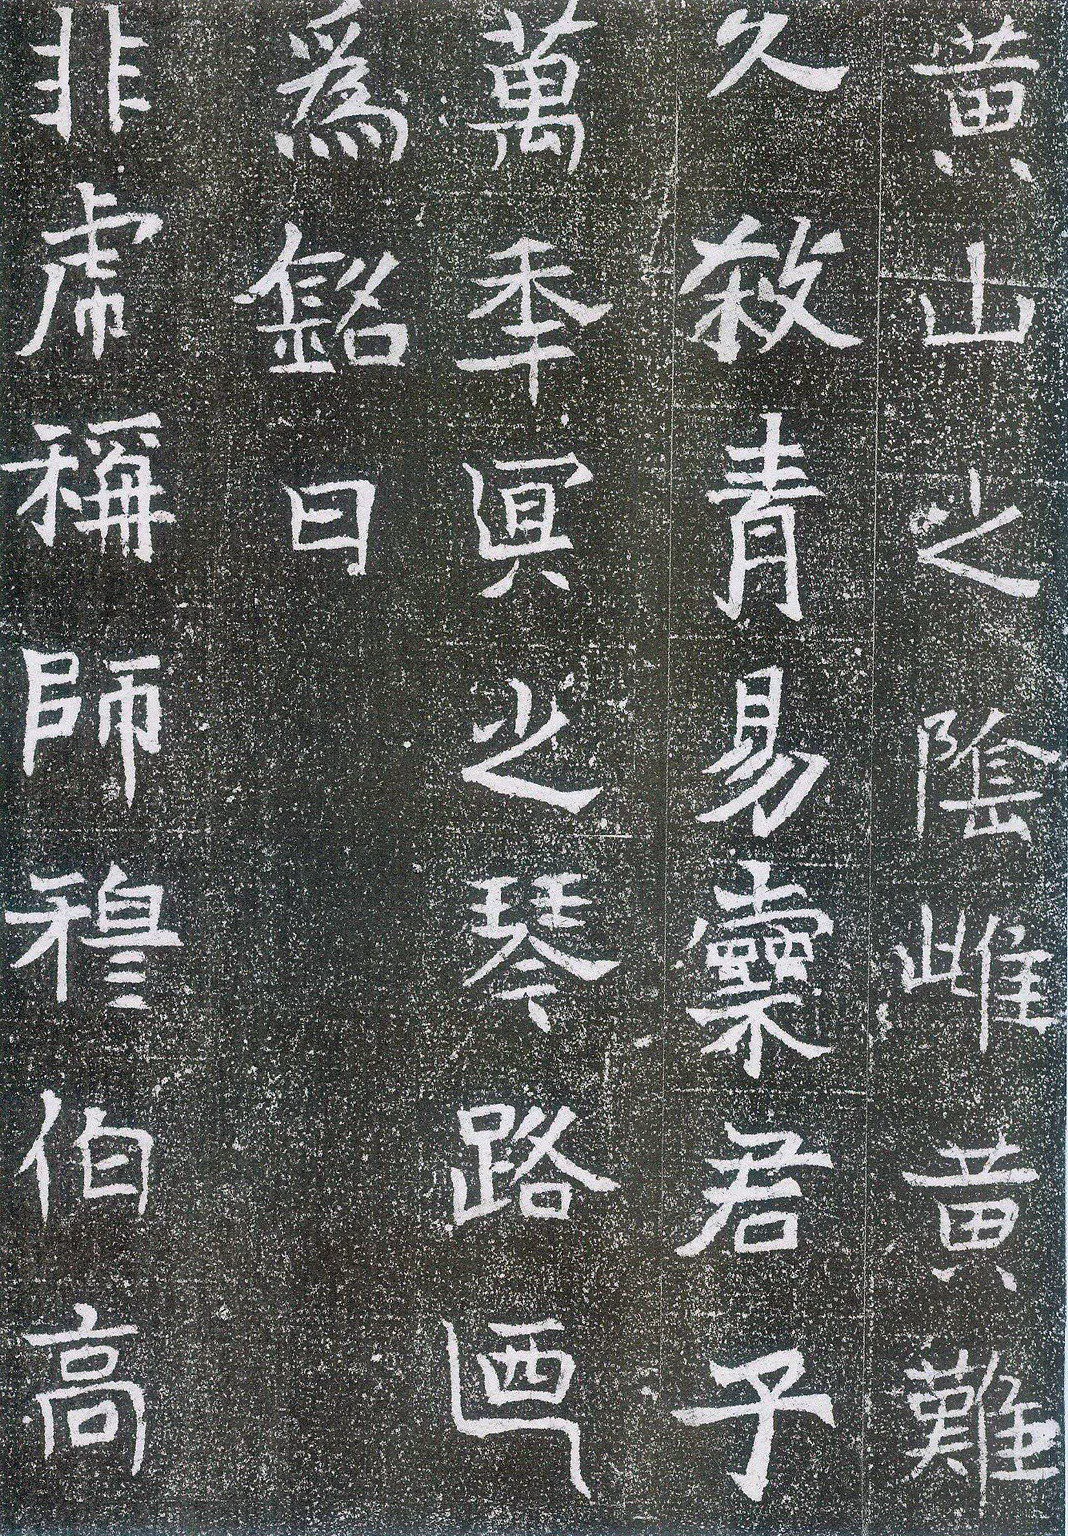 黄山之陰雌黄難
久殺青易君子
萬秊冥之琴路廼
爲銘曰
非虎稱師穆伯高